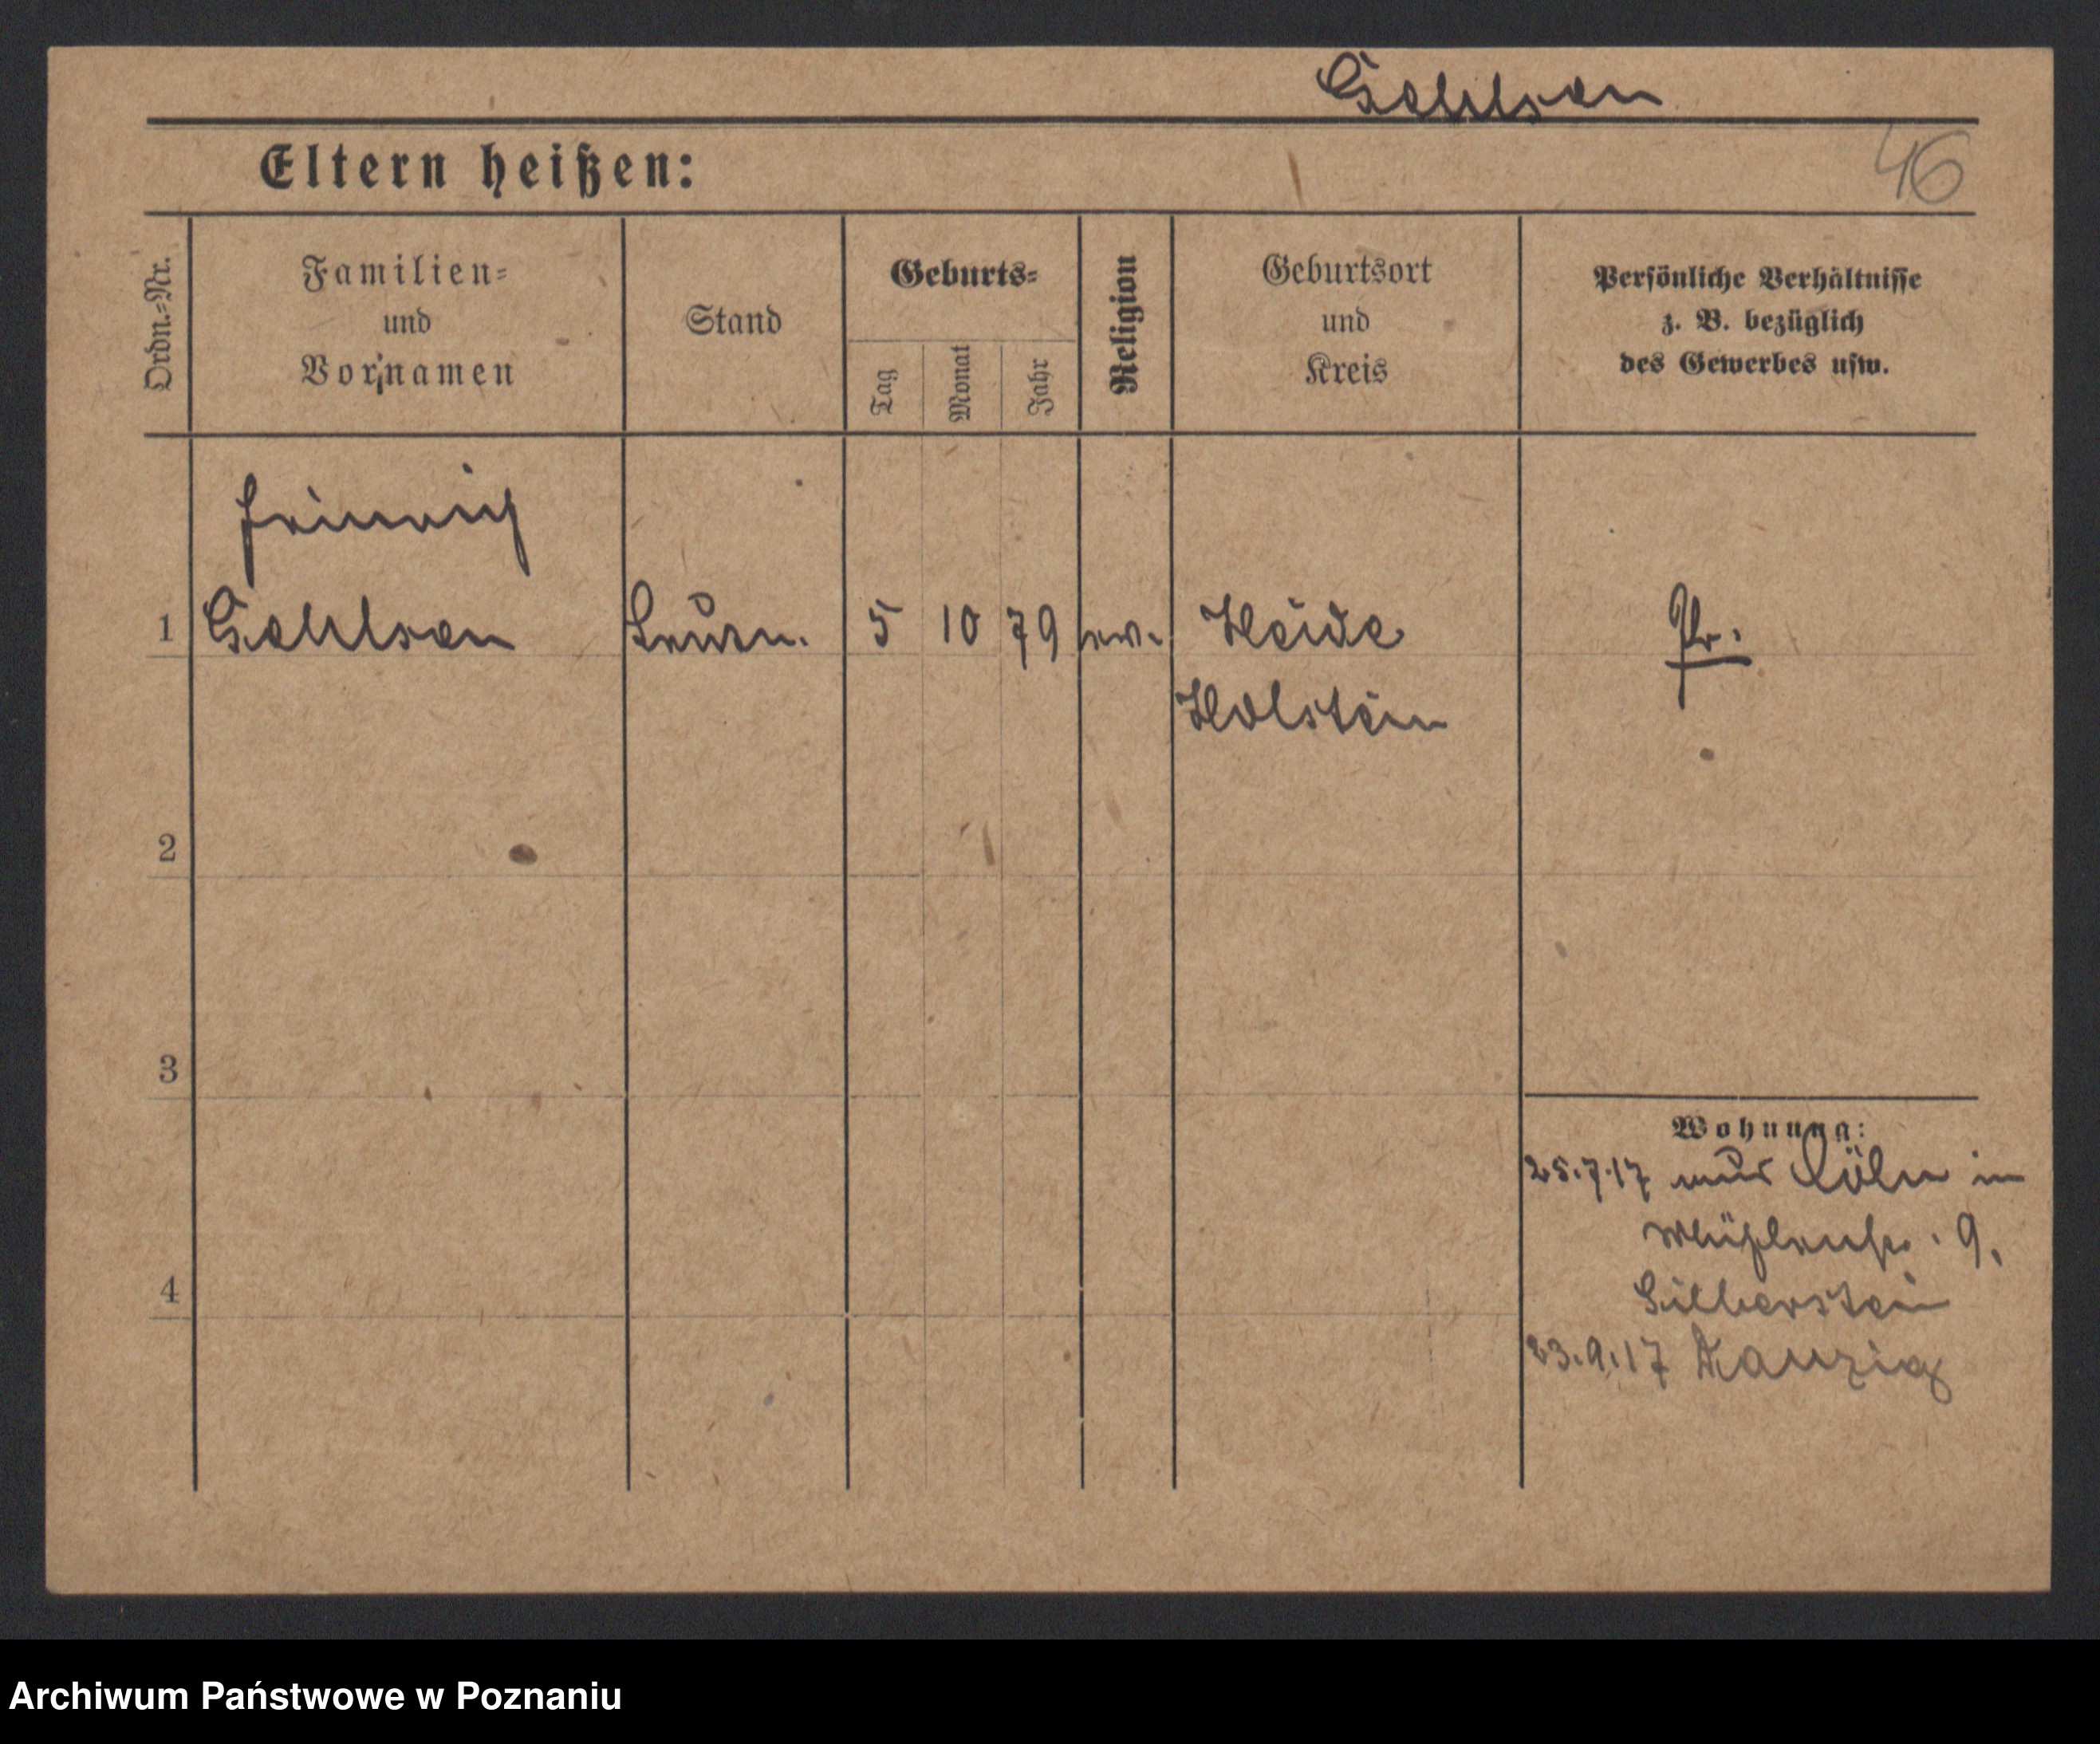 Gehlsen
Eltern heißen:
46
Ordn.-Nr.
Familien-
und
Vornamen
Stand
Geburts-
Tag
Monat
Jahr
Religion
Geburtsort
und
Kreis
Persönliche Verhältnisse
z. B. bezüglich
des Gewerbes usw.
Heinrich
1 Gehlsen 5 10 79 ev. Heide Pr.
Holstein
2
3
4
Wohnung:
25.7.17 aus Köln in
Mühlenstr. 9.
Silberstein
23.9.17 Danzig
Archiwum Państwowe w Poznaniu